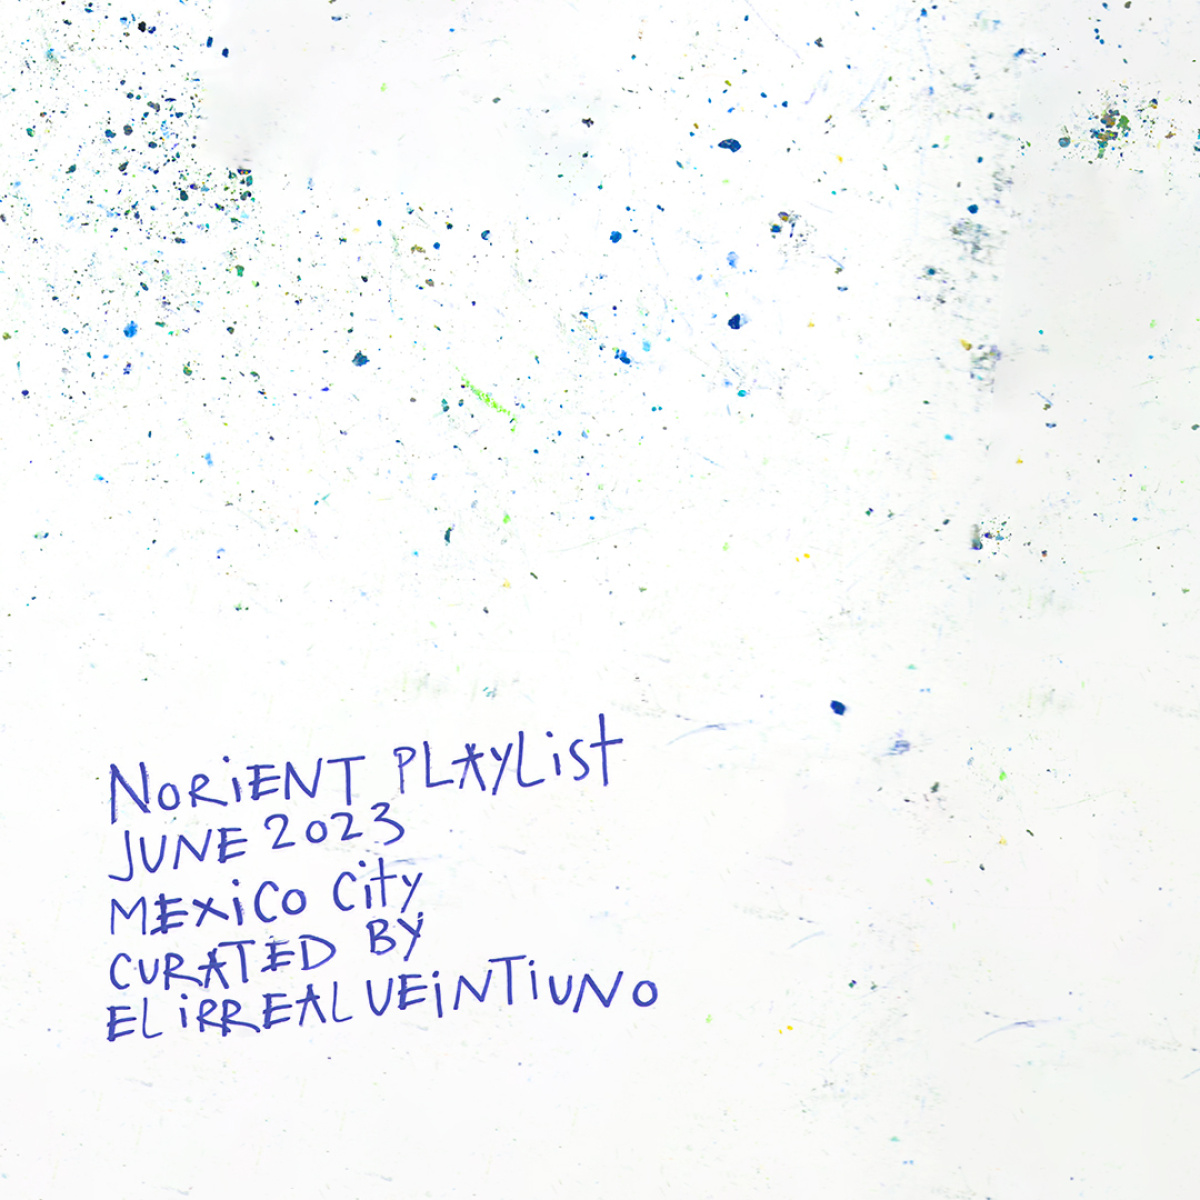 NORiENT PLAYList
JUNE 2023
MEXiCO City
CURATED BY
EL iRREAL VEiNTiUNO